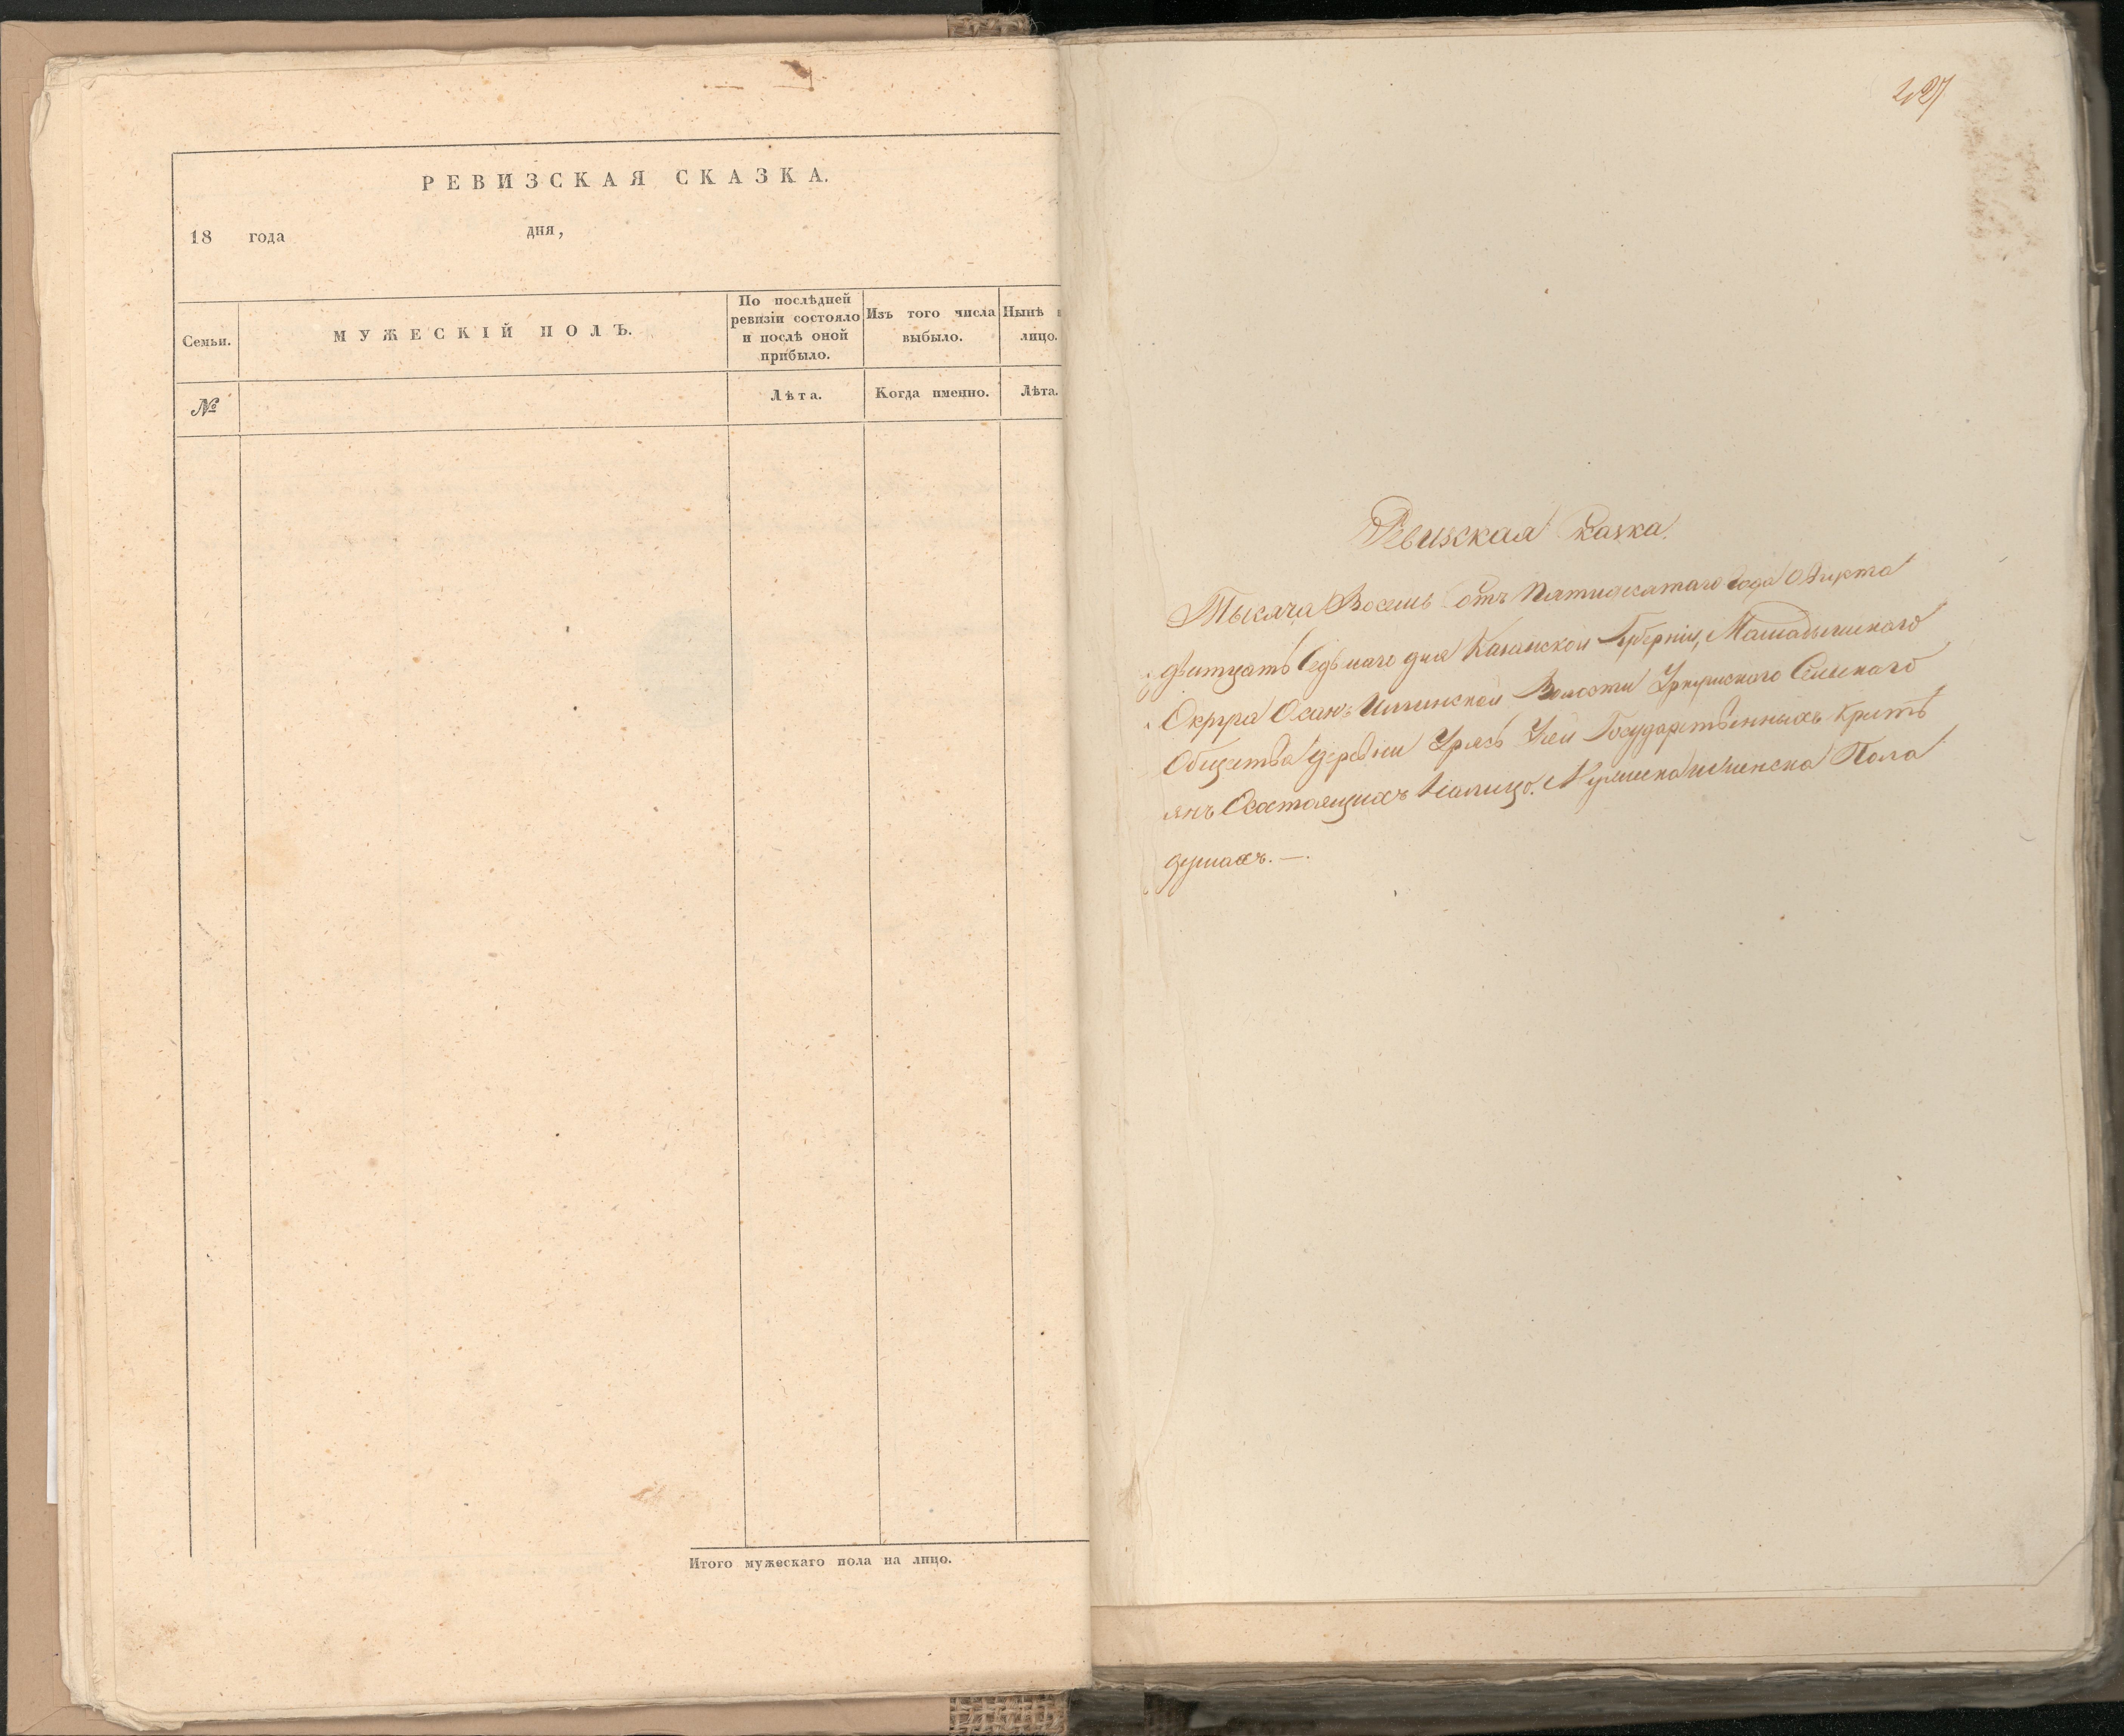 РЕВИЗСКАЯ СКАЗКА.
18 года дня,
Семьи.
МУЖЕСКІЙ ПОЛЪ.
По послѣдней
ревизіи состояло
и послѣ оной
прибыло.
Изъ того числа
выбыло.
Нынѣ
лицо.
№
Лѣта.
Когда именно.
Лѣта.
Итого мужескаго пола на лицо.
227
Ревизская Сказка.
Тысяча Восемь Сотъ Пятидесятаго Года Августа
дватцать Седьмаго дня Казанской Губерніи, Мамадышскаго
Округа Волости Сельскаго
Общества деревни Урясь Учи Государственныхъ Кресть
янъ Состоящихъ Налицо. Мужеска и Женска Пола
душахъ. —.